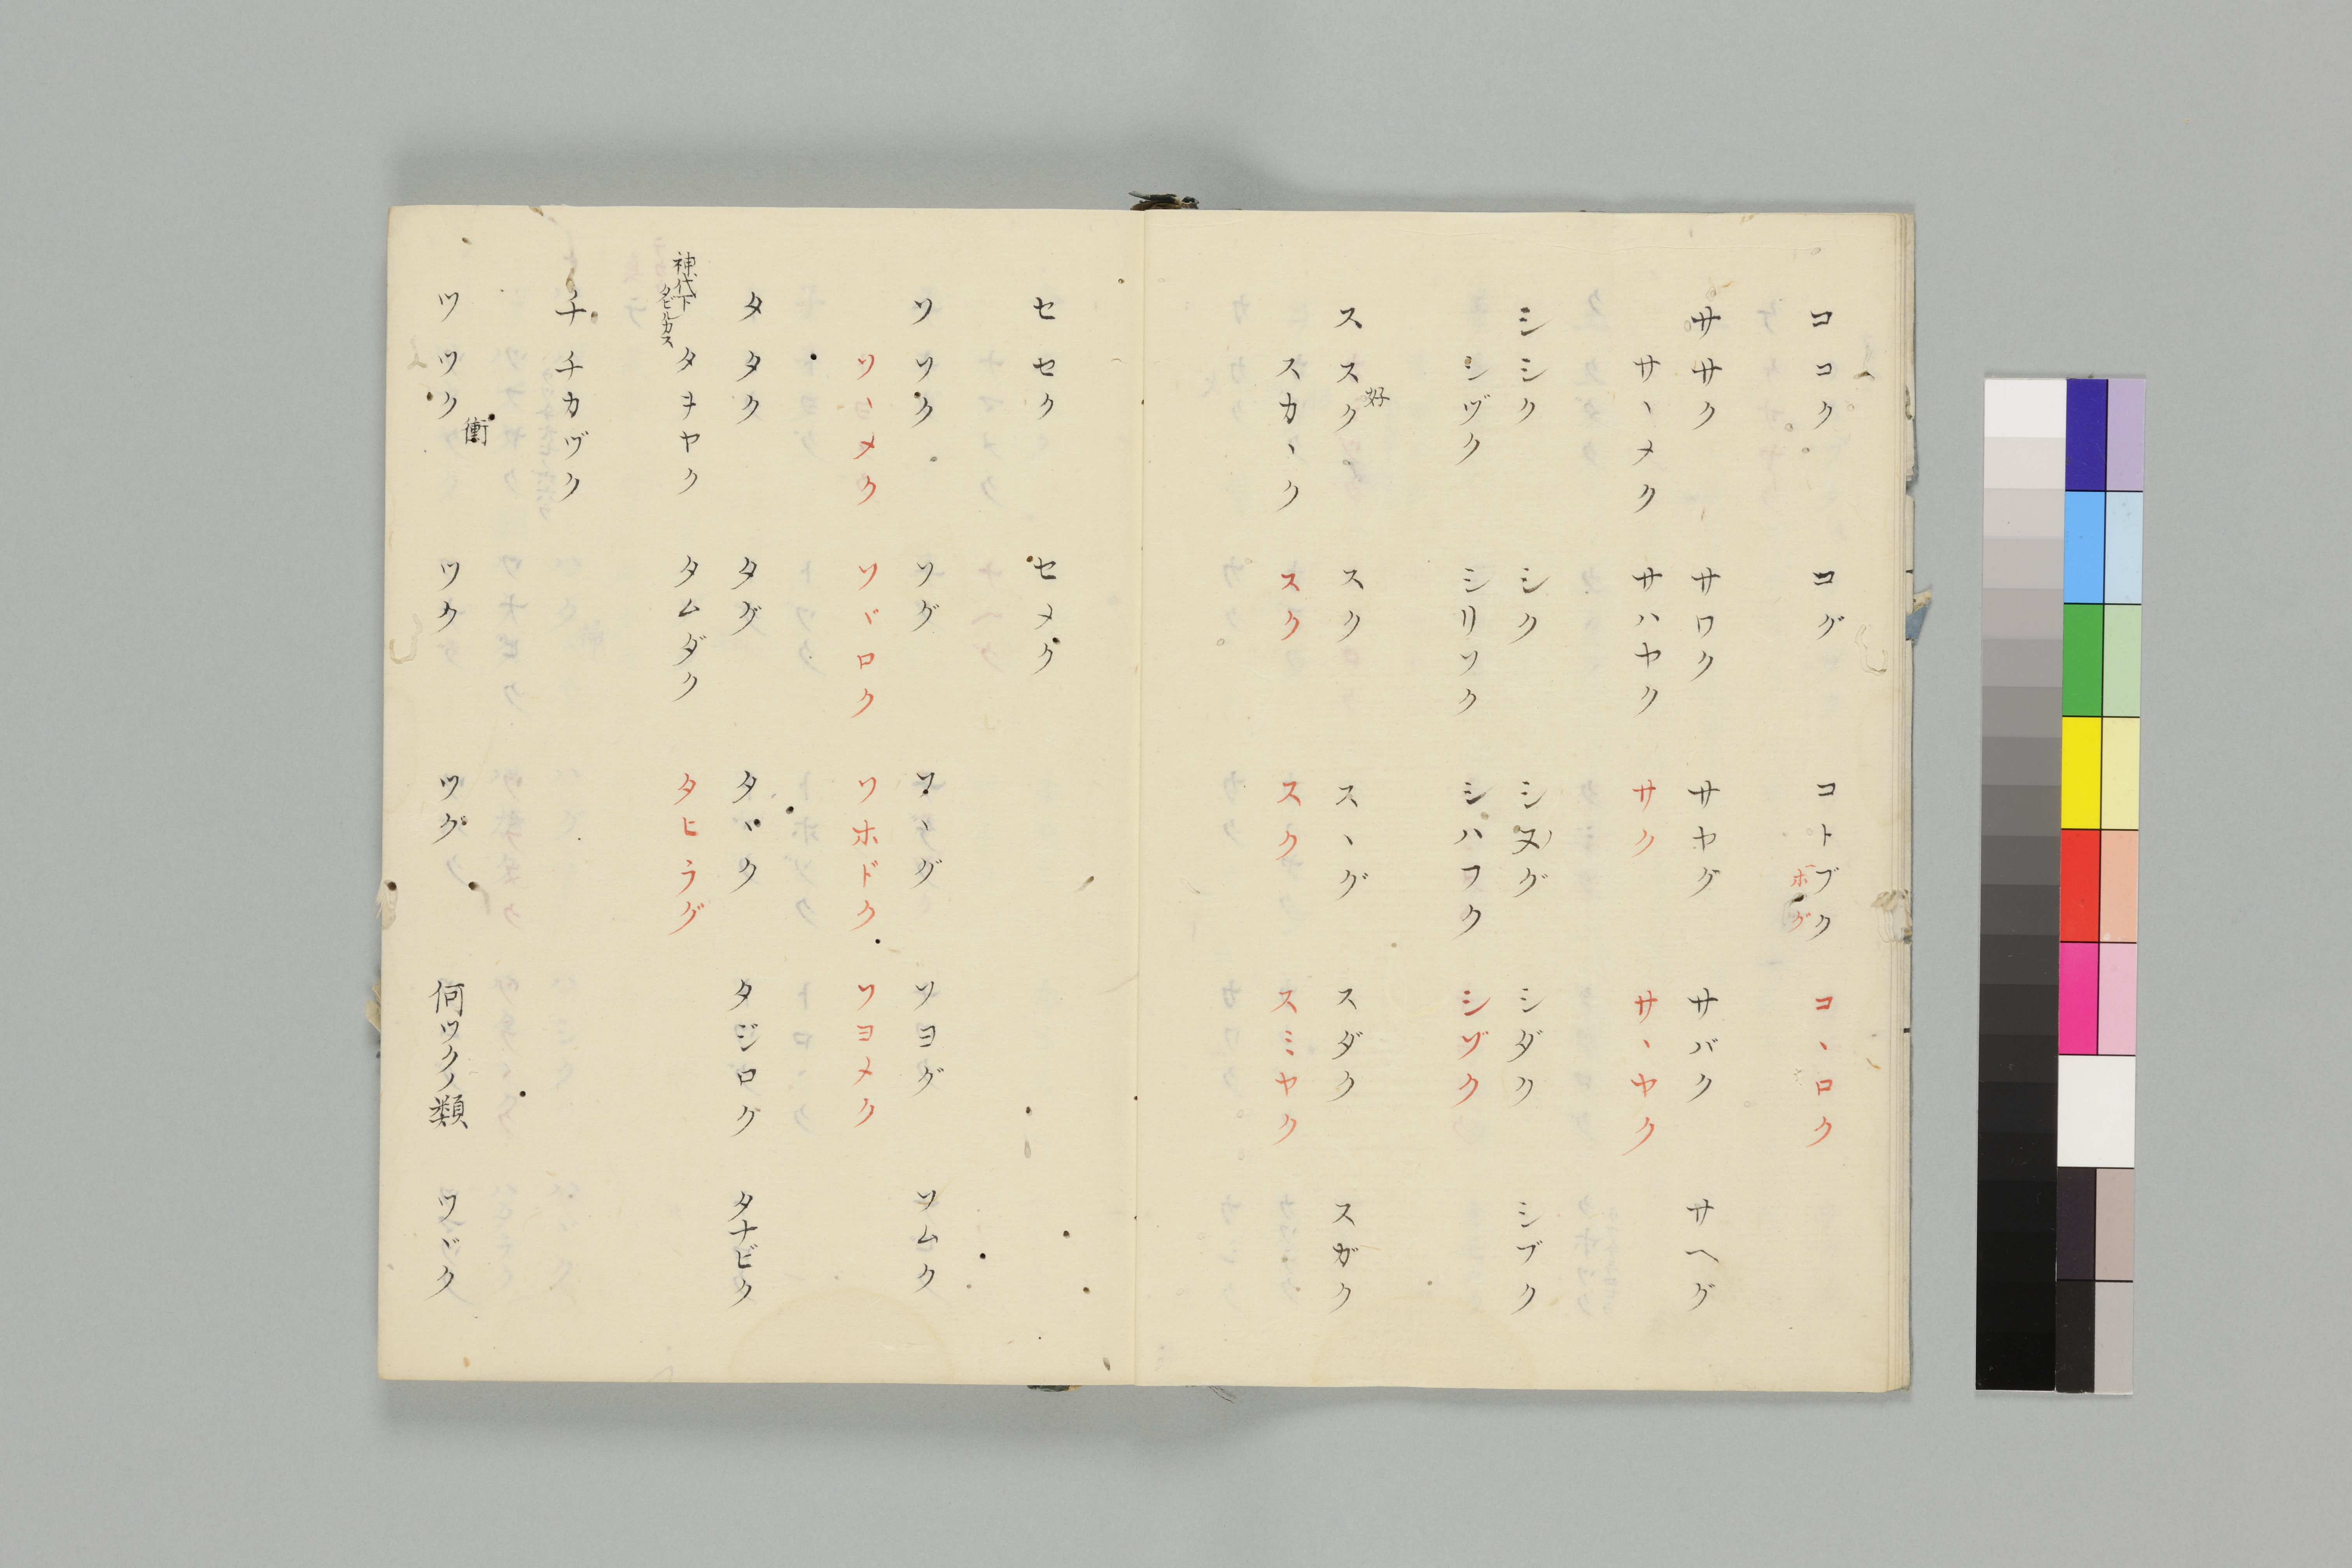 コ コク コグ コトブク コヽロク
ホグ
サ サク サワク サヤグ サバク サヘグ
サヽメク サハヤク サク サヽヤク
シ シク シク シヌグ シダク シブク
シヅク シリソク シハフク シヅク
ス スク スク スヽグ スダク スガク
好
スカヽク スク スク スミヤク
セ セク セメク
ソ ソク ソグ ソヽグ ソヨグ ソムク
ソヽメク ソヾロク ソホドク ソヨメク
タ タク タグ タヽク タジロク タナビク
神代下
タビルカス
タヲヤク タムダク タヒラグ
チ チカヅク
衝
ツ ツク ツク ツグ 何ツクノ類 ツヾク